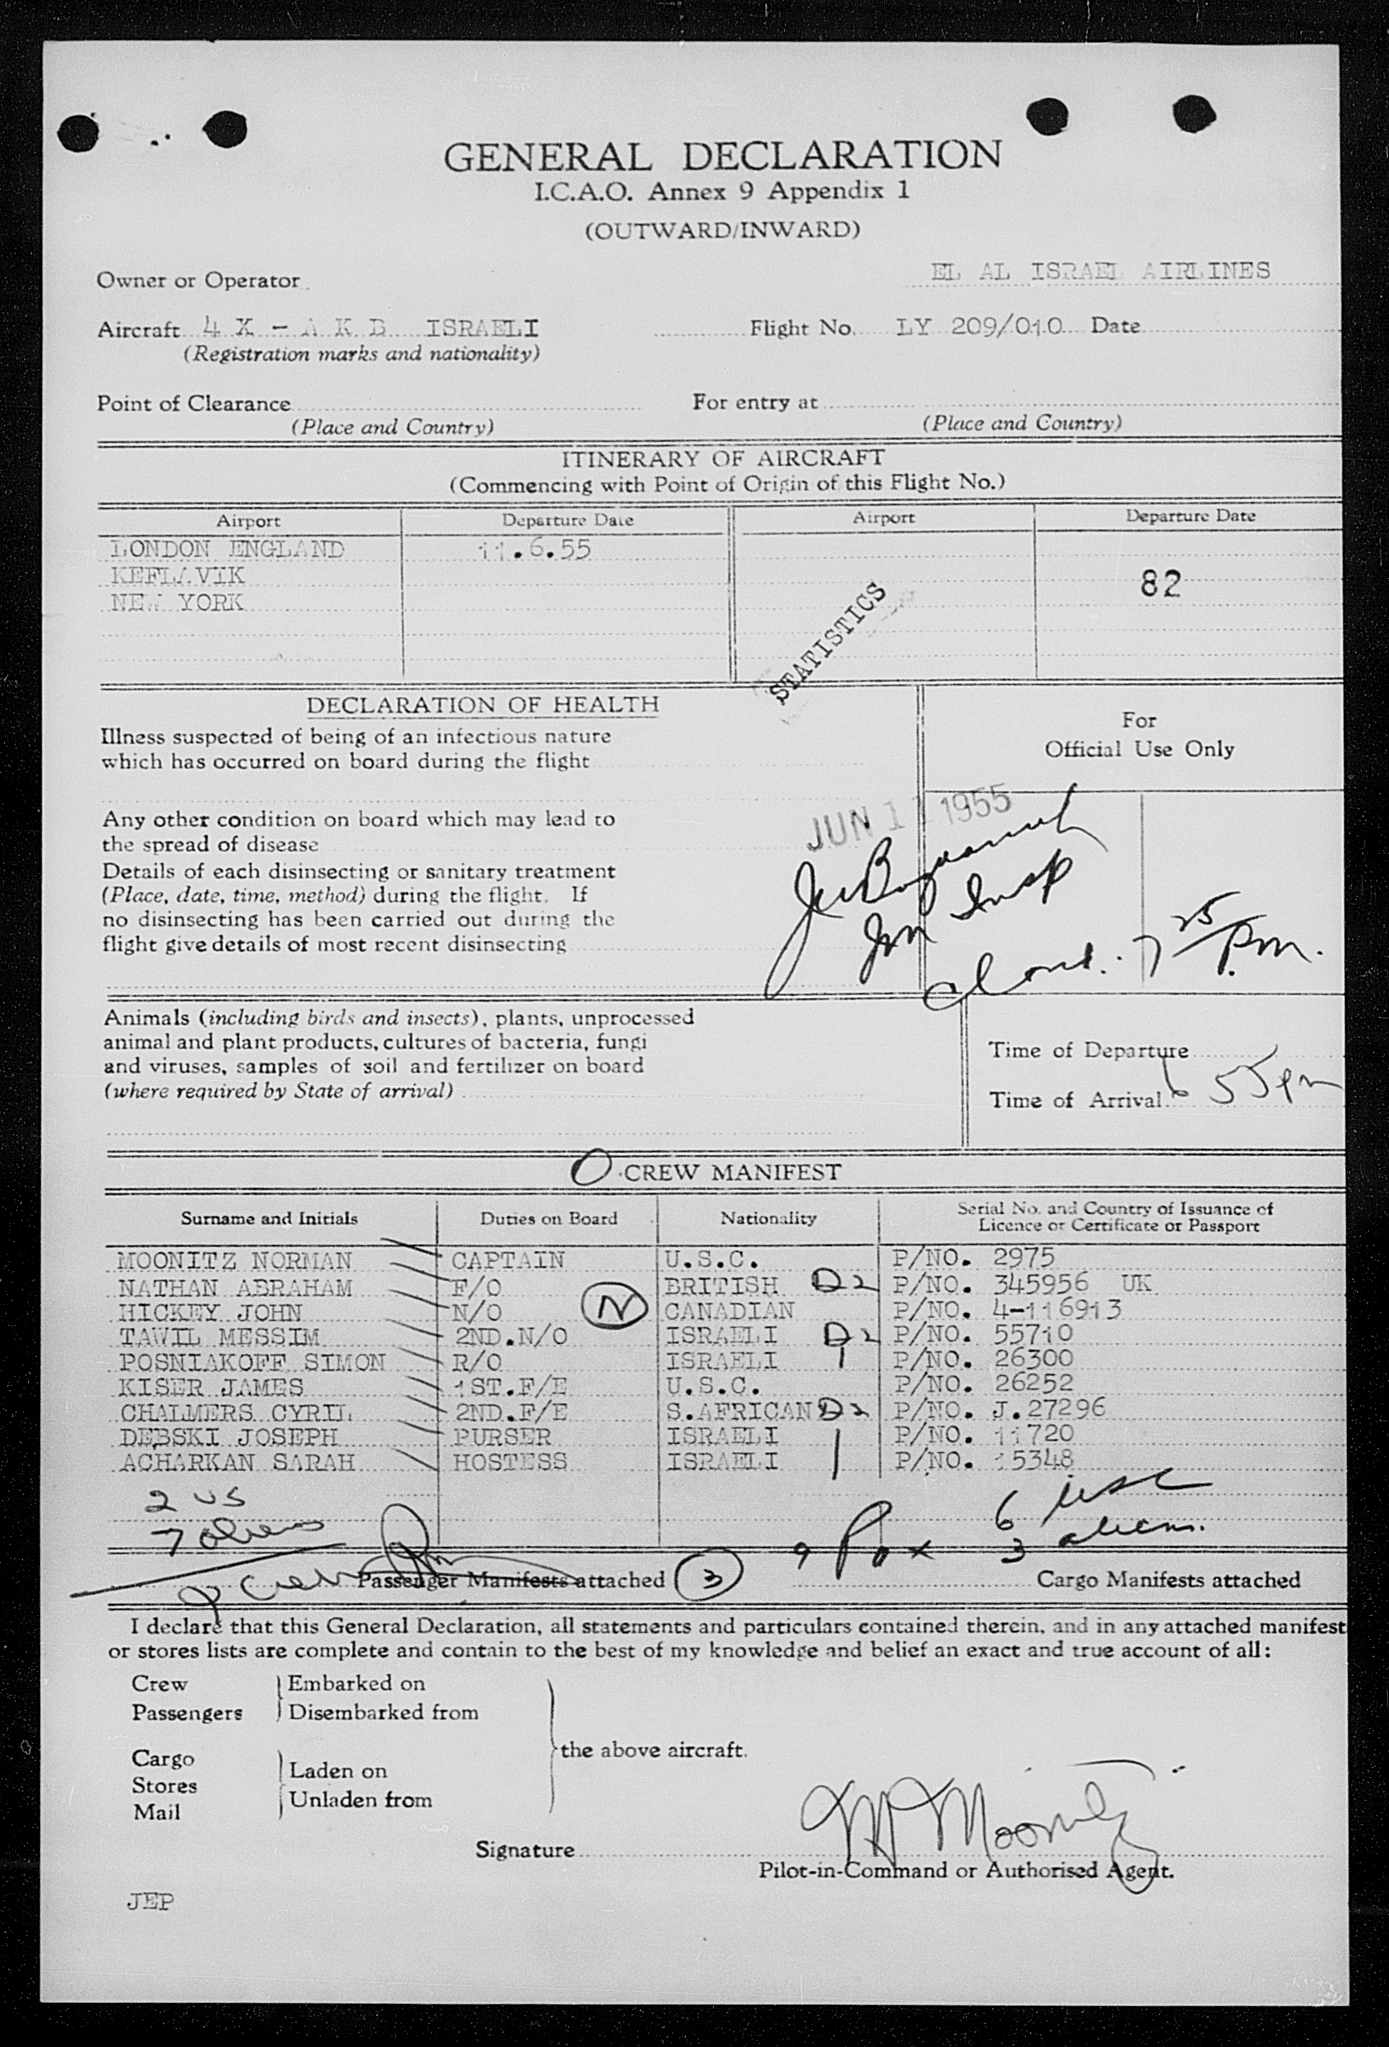 GENERAL DECLARATION
I.C.A.O. Annex 9 Appendix 1
(OUTWARD/INWARD)
Owner or Operator EL AL ISRAEL AIRLINES
Aircraft 4 X - A K B ISRAELI Flight No. LY 209/010 Date
(Registration marks and nationality)
Point of Clearance For entry at
(Place and Country) (Place and Country)
ITINERARY OF AIRCRAFT
(Commencing with Point of Origin of this Flight No.)
Airport Departure Date Airport Departure Date
LONDON ENGLAND 11.6.55
KEFLAVIK 82
NEW YORK
STATISTICS
DECLARATION OF HEALTH
Illness suspected of being of an infectious nature
which has occurred on board during the flight
For
Official Use Only
Any other condition on board which may lead to
the spread of disease
JUN 11 1955
Details of each disinsecting or sanitary treatment
(Place, date, time, method) during the flight. If
no disinsecting has been carried out during the
flight give details of most recent disinsecting
Imm Insp
7 25 P.m.
Animals (including birds and insects), plants, unprocessed
animal and plant products, cultures of bacteria, fungi
and viruses, samples of soil and fertilizer on board
(where required by State of arrival)
Time of Departure
Time of Arrival 6 55 pm
CREW MANIFEST
Surname and Initials Duties on Board Nationality Serial No. and Country of Issuance of
Licence or Certificate or Passport
MOONITZ NORMAN CAPTAIN U.S.C. P/NO. 2975
NATHAN ABRAHAM F/O BRITISH D2 P/NO. 345956 UK
HICKEY JOHN N/O N CANADIAN P/NO. 4-116913
TAWIL MESSIM 2ND.N/O ISRAELI D2 P/NO. 55710
POSNIAKOFF SIMON R/O ISRAELI P/NO. 26300
KISER JAMES 1ST.F/E U.S.C. P/NO. 26252
CHALMERS CYRIL 2ND.F/E S.AFRICAN D2 P/NO. J.27296
DEBSKI JOSEPH PURSER ISRAELI P/NO. 11720
ACHARKAN SARAH HOSTESS ISRAELI P/NO. 15348
2 US 6 USC
7 aliens 9 Pax 3 aliens.
9 Crew Passenger Manifests attached 3 Cargo Manifests attached
I declare that this General Declaration, all statements and particulars contained therein, and in any attached manifest
or stores lists are complete and contain to the best of my knowledge and belief an exact and true account of all:
Crew Embarked on
Passengers Disembarked from
the above aircraft.
Cargo
Stores Laden on
Mail Unladen from
Signature N Moonitz
Pilot-in-Command or Authorised Agent.
JEP